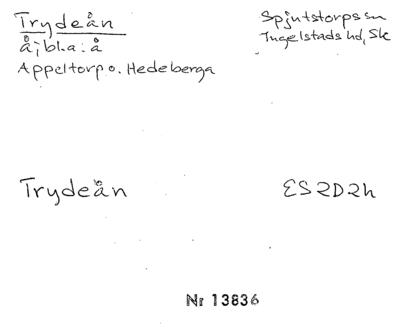 Trydeån
Spjutstorps sn
å; bl.a: å
Ingelstads hd, Sk
Appeltorp o. Hedeberga
Trydeån
ES2D2h
Nr 13836